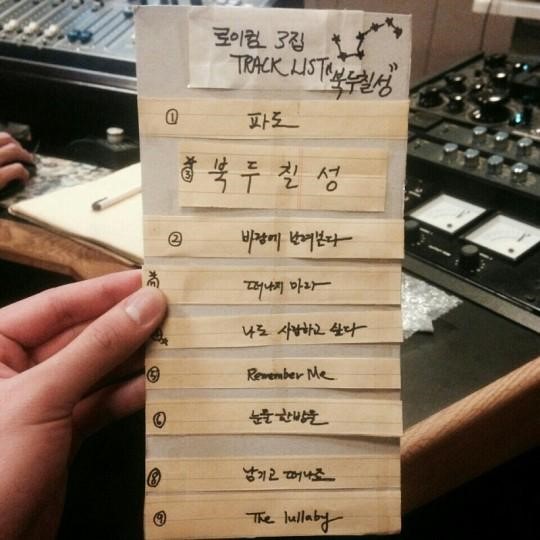 로이킴 3집
TRACK LIST "북두칠성"
① 파도
③ 북 두 칠 성
② 바람에 날려본다
떠나지 마라
나도 사랑하고 싶다
⑤ Remember Me
⑥ 눈물 한방울
⑧ 남기고 떠나죠
⑨ The lullaby